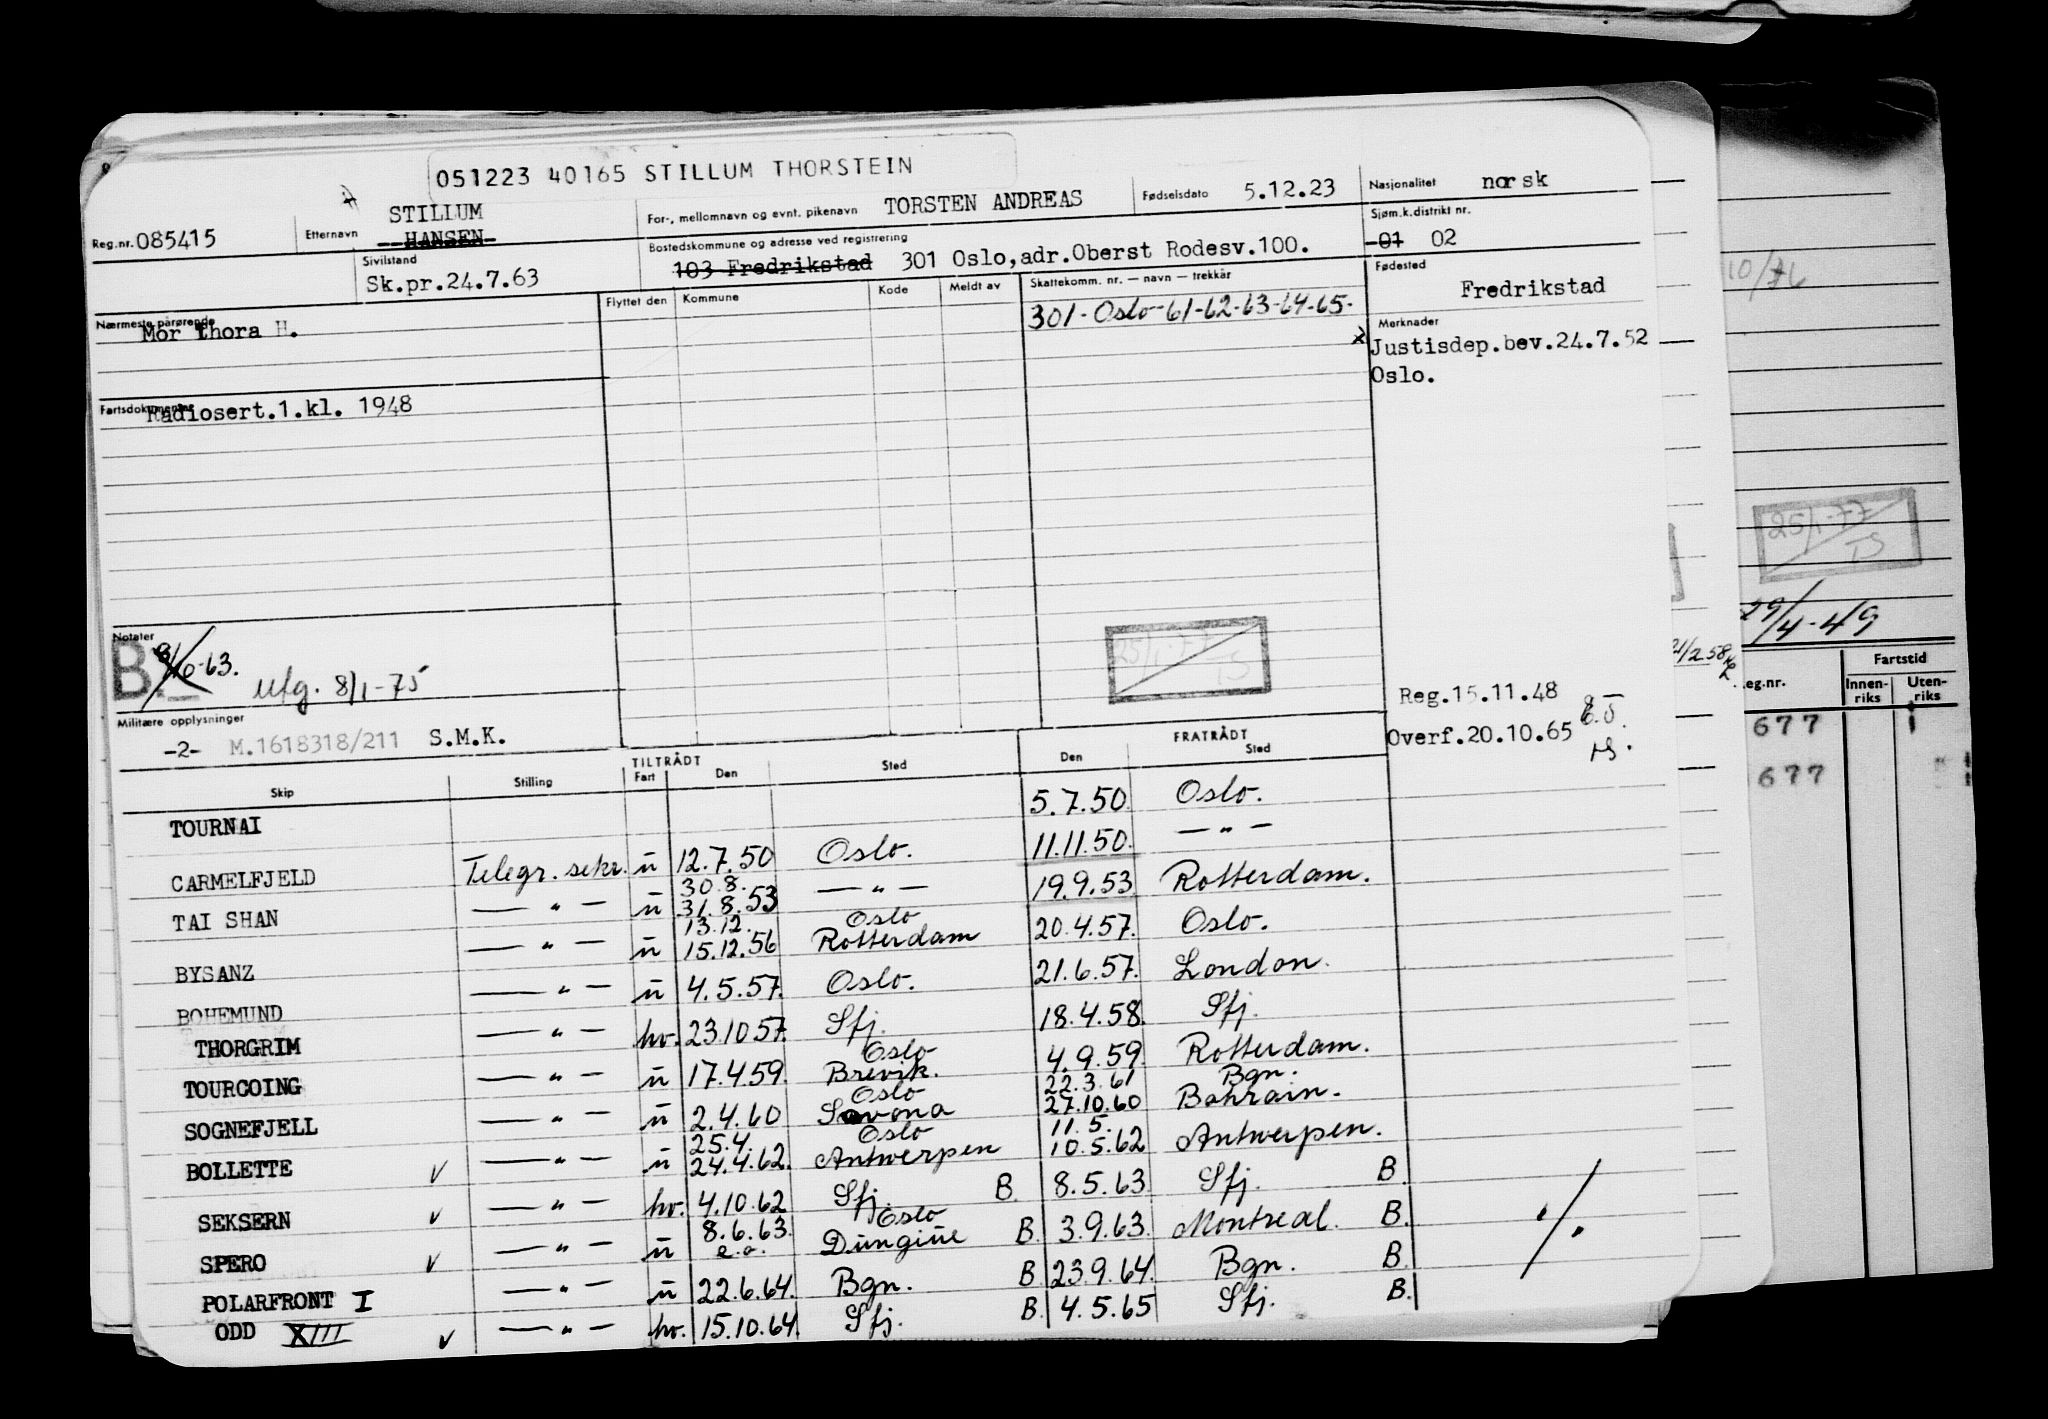 051223 40165 STILLUM THORSTEIN
Reg.nr. 085415 Etternavn STILLUM HANSEN For-, mellomnavn og evnt. pikenavn TORSTEN ANDREAS Fødselsdato 5.12.23 Nasjonalitet norsk
Sivilstand Sk.pr.24.7.63 Bostedskommune og adresse ved registrering 103 Fredrikstad 301 Oslo,adr.Oberst Rodesv.100. Sjøm.k.distrikt nr. 01 02
Nærmeste pårørende Mor Thora H. Flyttet den Kommune Kode Meldt av Skattekomm. nr. — navn — trekkår Fødested Fredrikstad
301-Oslo-61-62-63-64-65-
Merknader
x Justisdep.bev.24.7.52
Oslo.
Fartsdokumenter Radiosert.1.kl. 1948
10/76
25/1-77 TS
29/4-49
Notater
B. 9/10-63. Ufg. 8/1-75
25/1-77 TS
21/2.58
Reg.15.11.48
Militære opplysninger
-2- M.1618318/211 S.M.K. Overf.20.10.65
Fartstid
eg.nr. Innen-riks Uten-riks
677 1
677
TILTRÅDT FRATRÅDT
Skip Stilling Fart Den Sted Den Sted
TOURNAI 5.7.50 Oslo.
CARMELFJELD Telegr. sekr. u 12.7.50 Oslo. 11.11.50. — " —
TAI SHAN — " — u 30.8. 31.8.53 — " — 19.9.53 Rotterdam.
BYSANZ — " — u 13.12. 15.12.56 Oslo Rotterdam 20.4.57. Oslo.
BOHEMUND — " — u 4.5.57. Oslo. 21.6.57. London.
THORGRIM — " — hv. 23.10.57. Sfj. 18.4.58. Sfj.
TOURCOING — " — u 17.4.59. Oslo Brevik. 4.9.59 Rotterdam.
SOGNEFJELL — " — u 2.4.60 Oslo Savona 22.3.61 27.10.60 Bgn. Bahrain.
BOLLETTE v — " — u 25.4. 24.4.62. Oslo Antwerpen 11.5. 10.5.62 Antwerpen.
SEKSERN v — " — hv. 4.10.62 Sfj. B. 8.5.63 Sfj. B.
SPERO v — " — u 8.6.63. e.o. Oslo B. 3.9.63. Montreal. B.
POLARFRONT I — " — u 22.6.64. Bgn. B 23.9.64. Bgn. B
ODD XIII v — " — hv. 15.10.64 Sfj. B. 4.5.65 Sfj. B.
./.